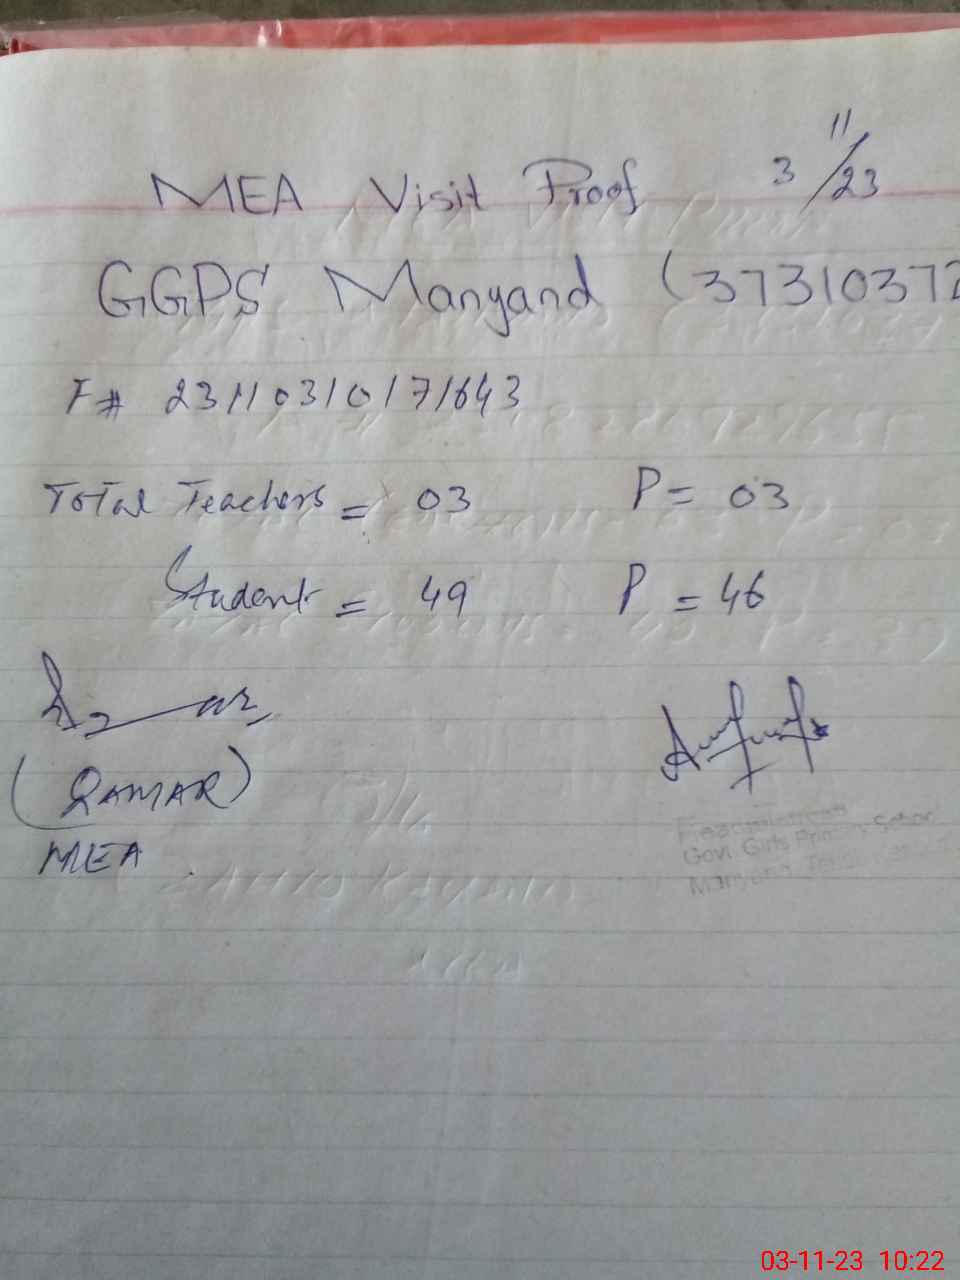 MEA Visit Proof 3/11/23
GGPS Manyand (37310372
F# 23110310171643
Total Teachers = 03 P = 03
Student = 49 P = 46
(QAMAR)
MEA
Govt Girls Primary School
Manyand
03-11-23 10:22